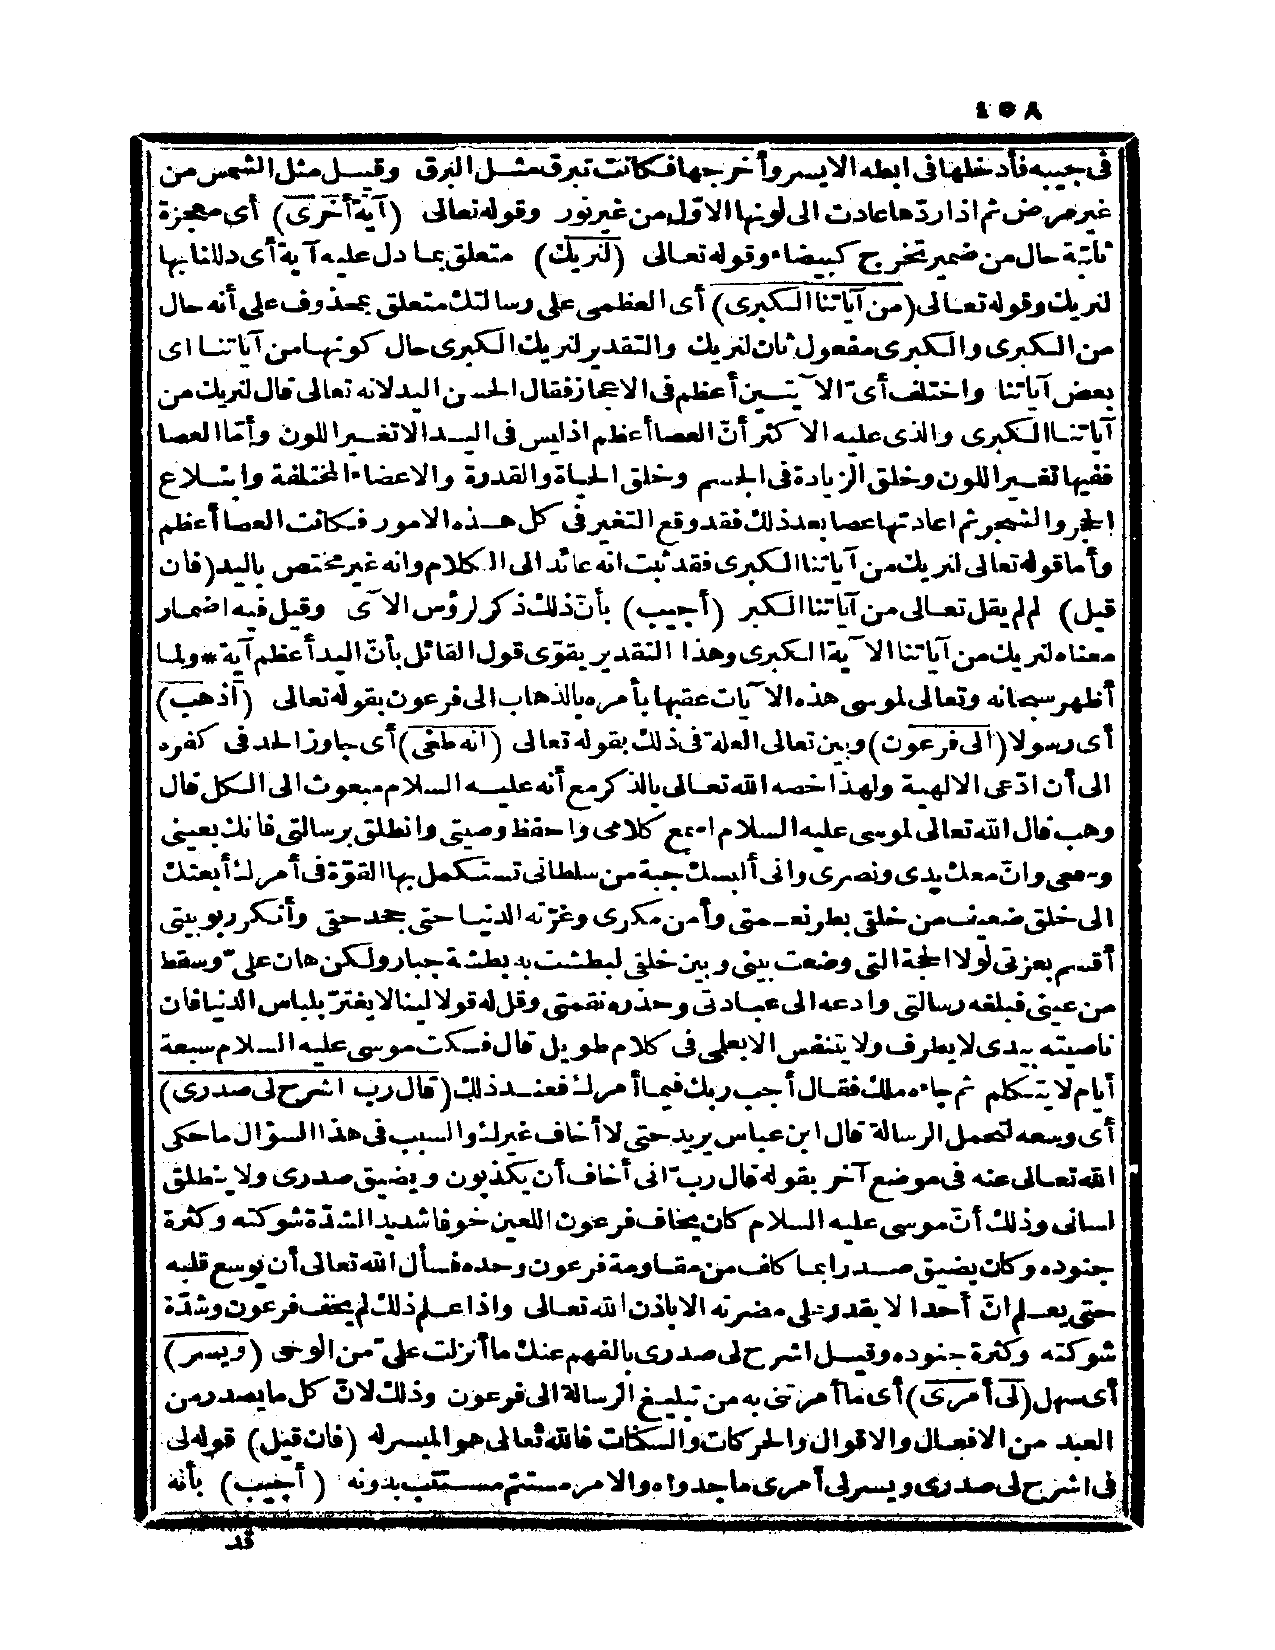 ٤٥٨
فى جيبه فأدخلها فى ابطه الايسر وأخرجها فكانت تبرق مثل البرق وقيل مثل الشمس من
غير مرض ثم اذا ردّها عادت الى لونها الاوّل من غير نور وقوله تعالى (آية أخرى) أى معجزة
ثانية حال من ضمير تخرج كبيضاء وقوله تعالى (لنريك) متعلق بما دل عليه آية أى دللنا بها
لنريك وقوله تعالى (من آياتنا الكبرى) أى العظمى على رسالتك متعلق بمحذوف على أنه حال
من الكبرى والكبرى مفعول ثان لنريك والتقدير لنريك الكبرى حال كونها من آياتنا اى
بعض آياتنا واختلف أىّ الآيتين أعظم فى الاعجاز فقال الحسن اليد لانه تعالى قال لنريك من
آياتنا الكبرى والذى عليه الاكثر أنّ العصا أعظم اذ ليس فى اليد الا تغير اللون وأمّا العصا
ففيها تغير اللون وخلق الزيادة فى الجسم وخلق الحياة والقدرة والاعضاء المختلفة وابتلاع
الحجر والشجر ثم اعادتها عصا بعد ذلك فقد وقع التغير فى كل هذه الامور فكانت العصا أعظم
وأما قوله تعالى لنريك من آياتنا الكبرى فقد ثبت انه عائد الى الكلام وانه غير مختص باليد (فان
قيل) لم لم يقل تعالى من آياتنا الكبر (أجيب) بأنّ ذلك ذكر لرؤس الآى وقيل فيه اضمار
معناه لنريك من آياتنا الآية الكبرى وهذا التقدير يقوّى قول القائل بأنّ اليد أعظم آية * ولما
أظهر سبحانه وتعالى لموسى هذه الآيات عقبها بأمره بالذهاب الى فرعون بقوله تعالى (اذهب)
أى رسولا (الى فرعون) وبين تعالى العلة فى ذلك بقوله تعالى (انه طغى) أى جاوز الحد فى كفره
الى أن ادّعى الالهية ولهذا خصه الله تعالى بالذكر مع أنه عليه السلام مبعوث الى الكل قال
وهب قال الله تعالى لموسى عليه السلام اسمع كلامى واحفظ وصيتى وانطلق برسالتى فانك بعينى
وسمعى وانّ معك يدى ونصرى وانى ألبسك جبة من سلطانى تستكمل بها القوّة فى أمرك أبعثك
الى خلق ضعيف من خلقى بطر نعمتى وأمن مكرى وغرّته الدنيا حتى جحد حقى وأنكر ربوبيتى
أقسم بعزتى لولا الحجة التى وضعت بينى وبين خلقى لبطشت به بطشة جبار ولكن هان علىّ وسقط
من عينى فبلغه رسالتى وادعه الى عبادتى وحذره نقمتى وقل له قولا لينا لا يغترّ بلباس الدنيا فان
ناصيته بيدى لا يطرف ولا يتنفس الا بعلمى فى كلام طويل قال فسكت موسى عليه السلام سبعة
أيام لا يتكلم ثم جاءه ملك فقال أجب ربك فيما أمرك فعند ذلك (قال رب اشرح لى صدرى)
أى وسعه لتحمل الرسالة قال ابن عباس يريد حتى لا أخاف غيرك والسبب فى هذا السؤال ما حكى
الله تعالى عنه فى موضع آخر بقوله قال ربّ انى أخاف أن يكذبون ويضيق صدرى ولا ينطلق
لسانى وذلك أنّ موسى عليه السلام كان يخاف فرعون اللعين خوفا شديدا لشدّة شوكته وكثرة
جنوده وكان يضيق صدرا بما كلف من مقاومة فرعون وحده فسأل الله تعالى أن يوسع قلبه
حتى يعلم انّ أحدا لا يقدر على مضرته الا باذن الله تعالى واذا علم ذلك لم يخف فرعون وشدّة
شوكته وكثرة جنوده وقيل اشرح لى صدرى بالفهم عنك ما أنزلت علىّ من الوحى (ويسر)
أى سهل (لى أمرى) أى ما أمرتنى به من تبليغ الرسالة الى فرعون وذلك لانّ كل ما يصدر من
العبد من الافعال والاقوال والحركات والسكنات فالله تعالى هو الميسر له (فان قيل) قوله لى
فى اشرح لى صدرى ويسر لى أمرى ما جدواه والامر مستتم مستتب بدونه (أجيب) بأنه
قد